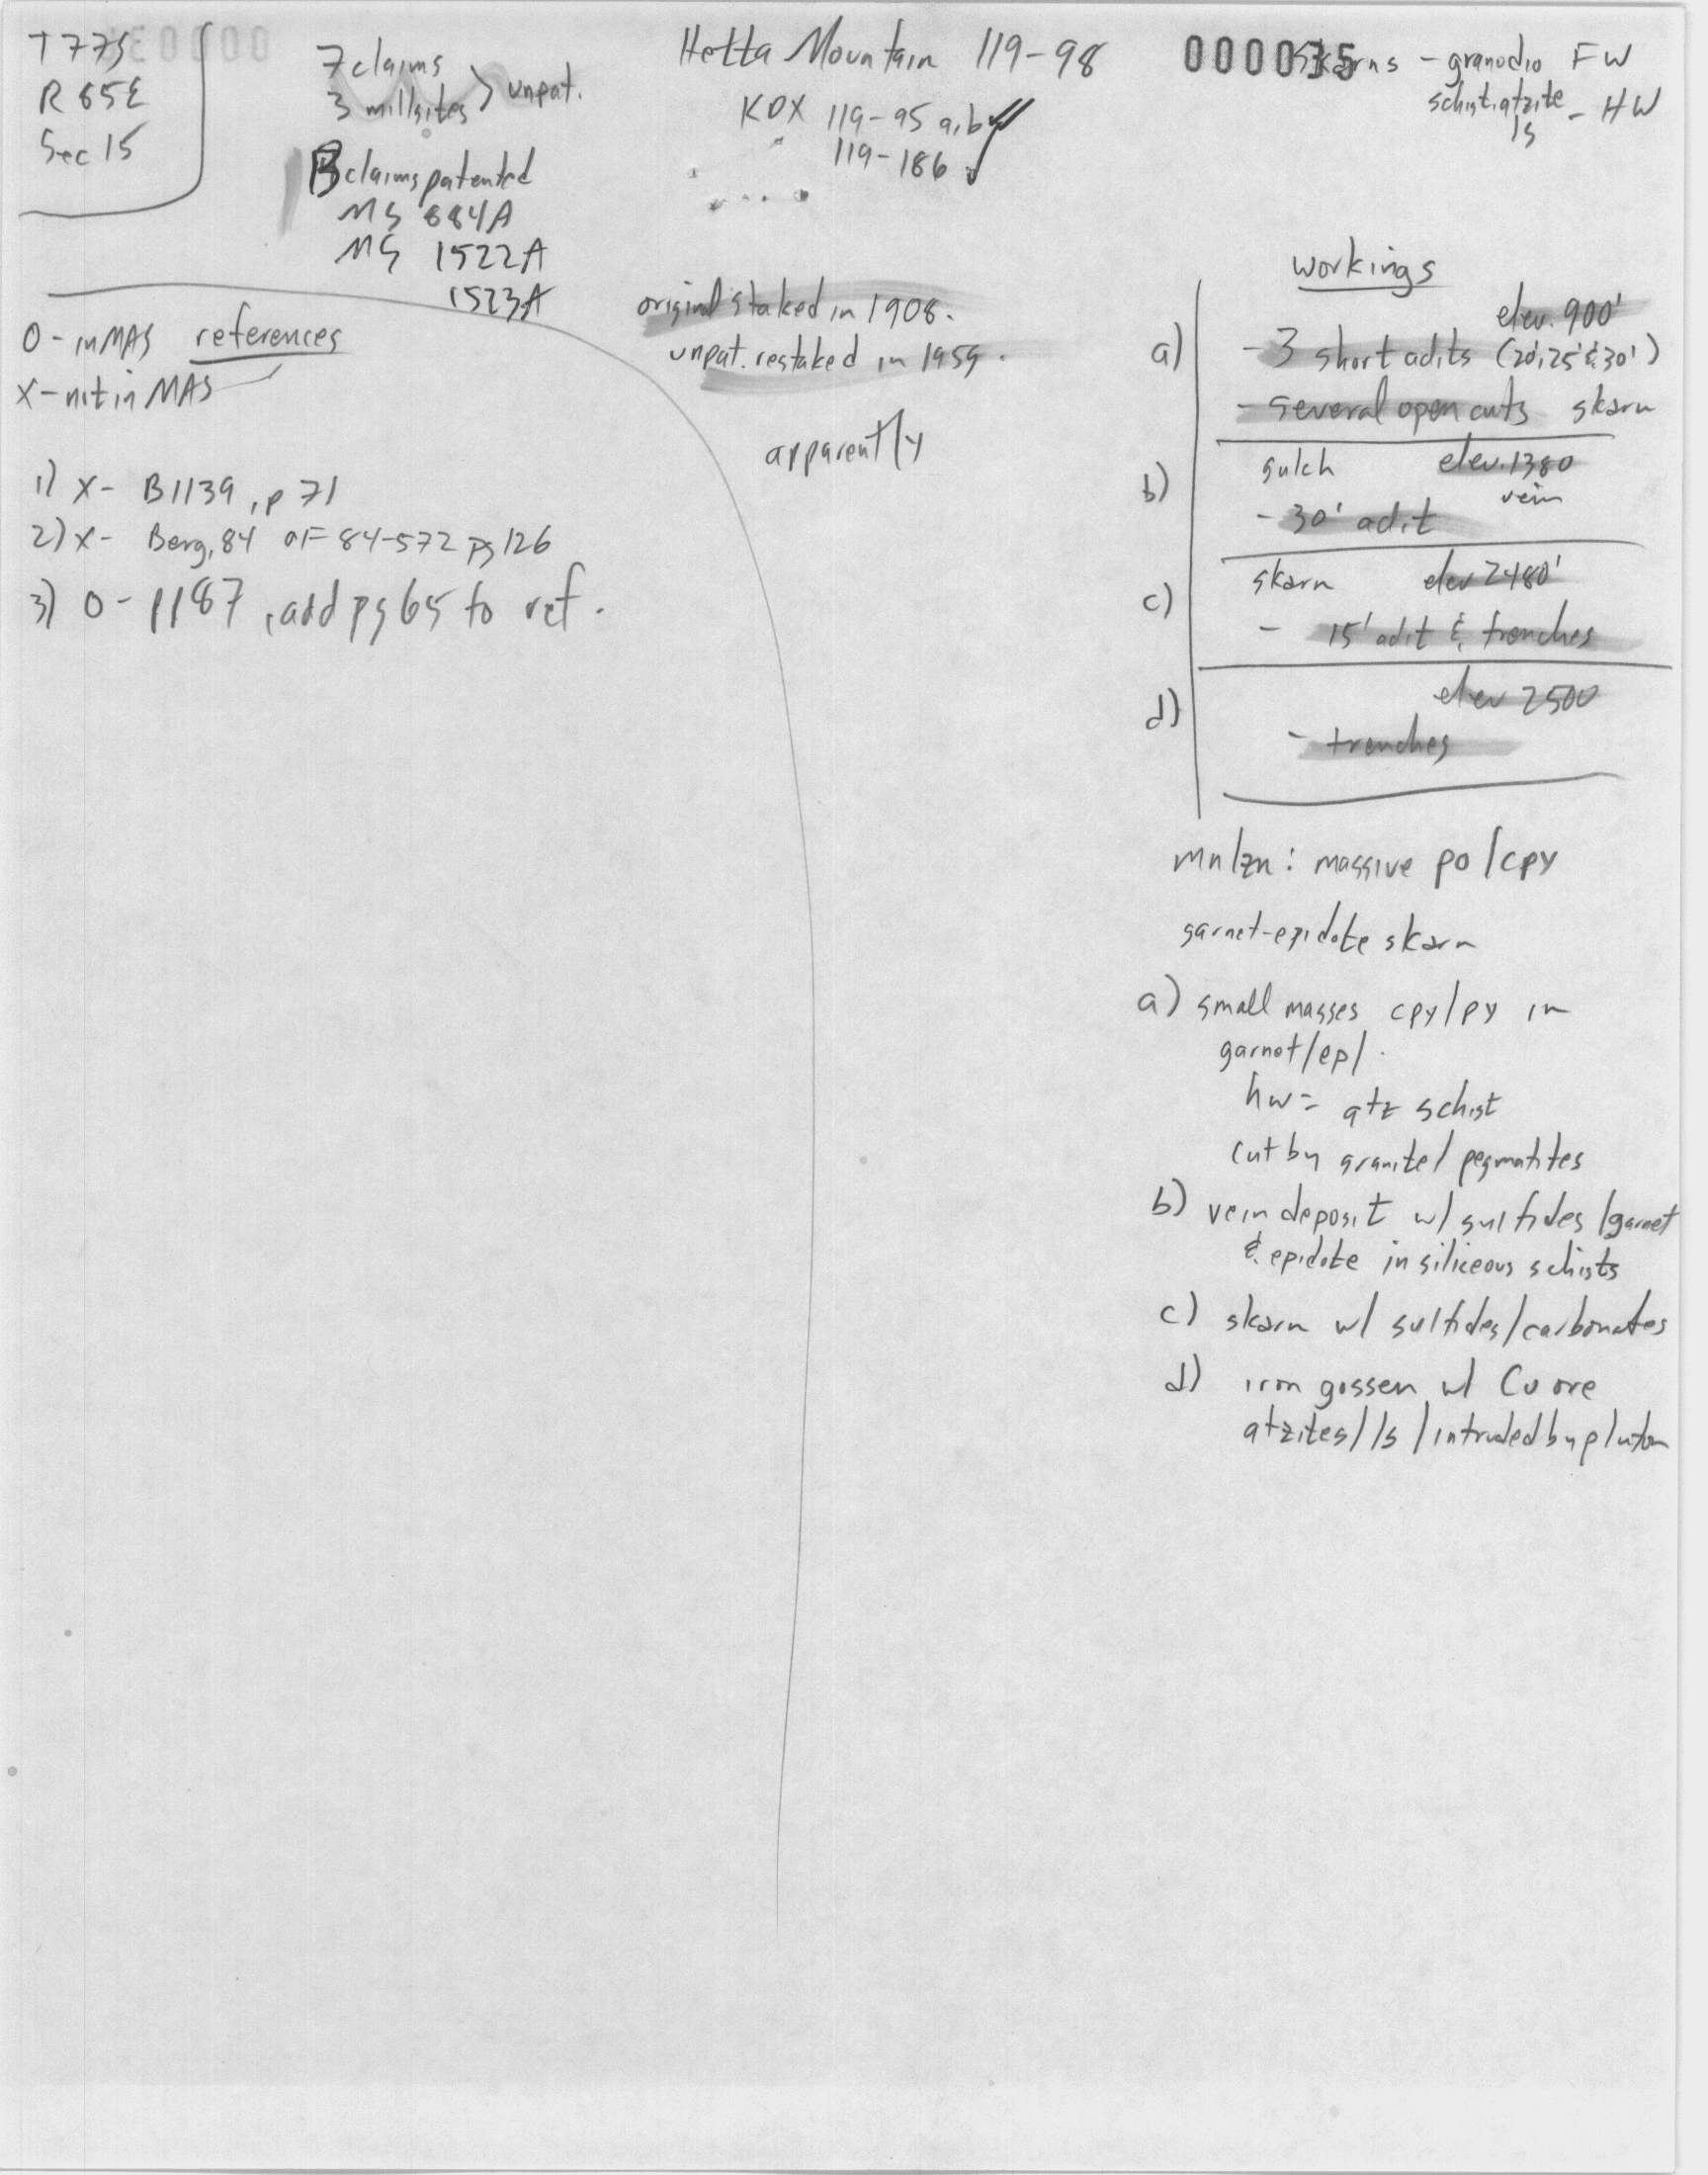 T 77S
R 65E
Sec 15
7 claims
3 millsites > unpat.
claims patented
MS 884A
MS 1522A
1523A
Hetta Mountain 119-98
KDX 119-95 a,b
119-186
000035
Skarns - granodio FW
schist, qtzite - HW
ls
original staked in 1908.
unpat. restaked in 1959.
apparently
O - in MAS references
X - not in MAS
1) X - B1139, p 71
2) X - Berg, 84 OF 84-572 pg 126
3) O - P187, add pg 65 to ref.
workings
elev. 900'
a) - 3 short adits (20', 25' & 30')
- several open cuts skarn
b) gulch elev. 1380
vein
- 30' adit
skarn elev 2480'
c) - 15' adit & trenches
elev 2500
d) - trenches
mnlzn: massive po/cpy
garnet-epidote skarn
a) small masses cpy/py in
garnet/ep/.
hw = qtz schist
cut by granite/pegmatites
b) vein deposit w/ sulfides/garnet
& epidote in siliceous schists
c) skarn w/ sulfides/carbonates
d) iron gossen w/ Cu ore
qtzites/ls/intruded by pluton